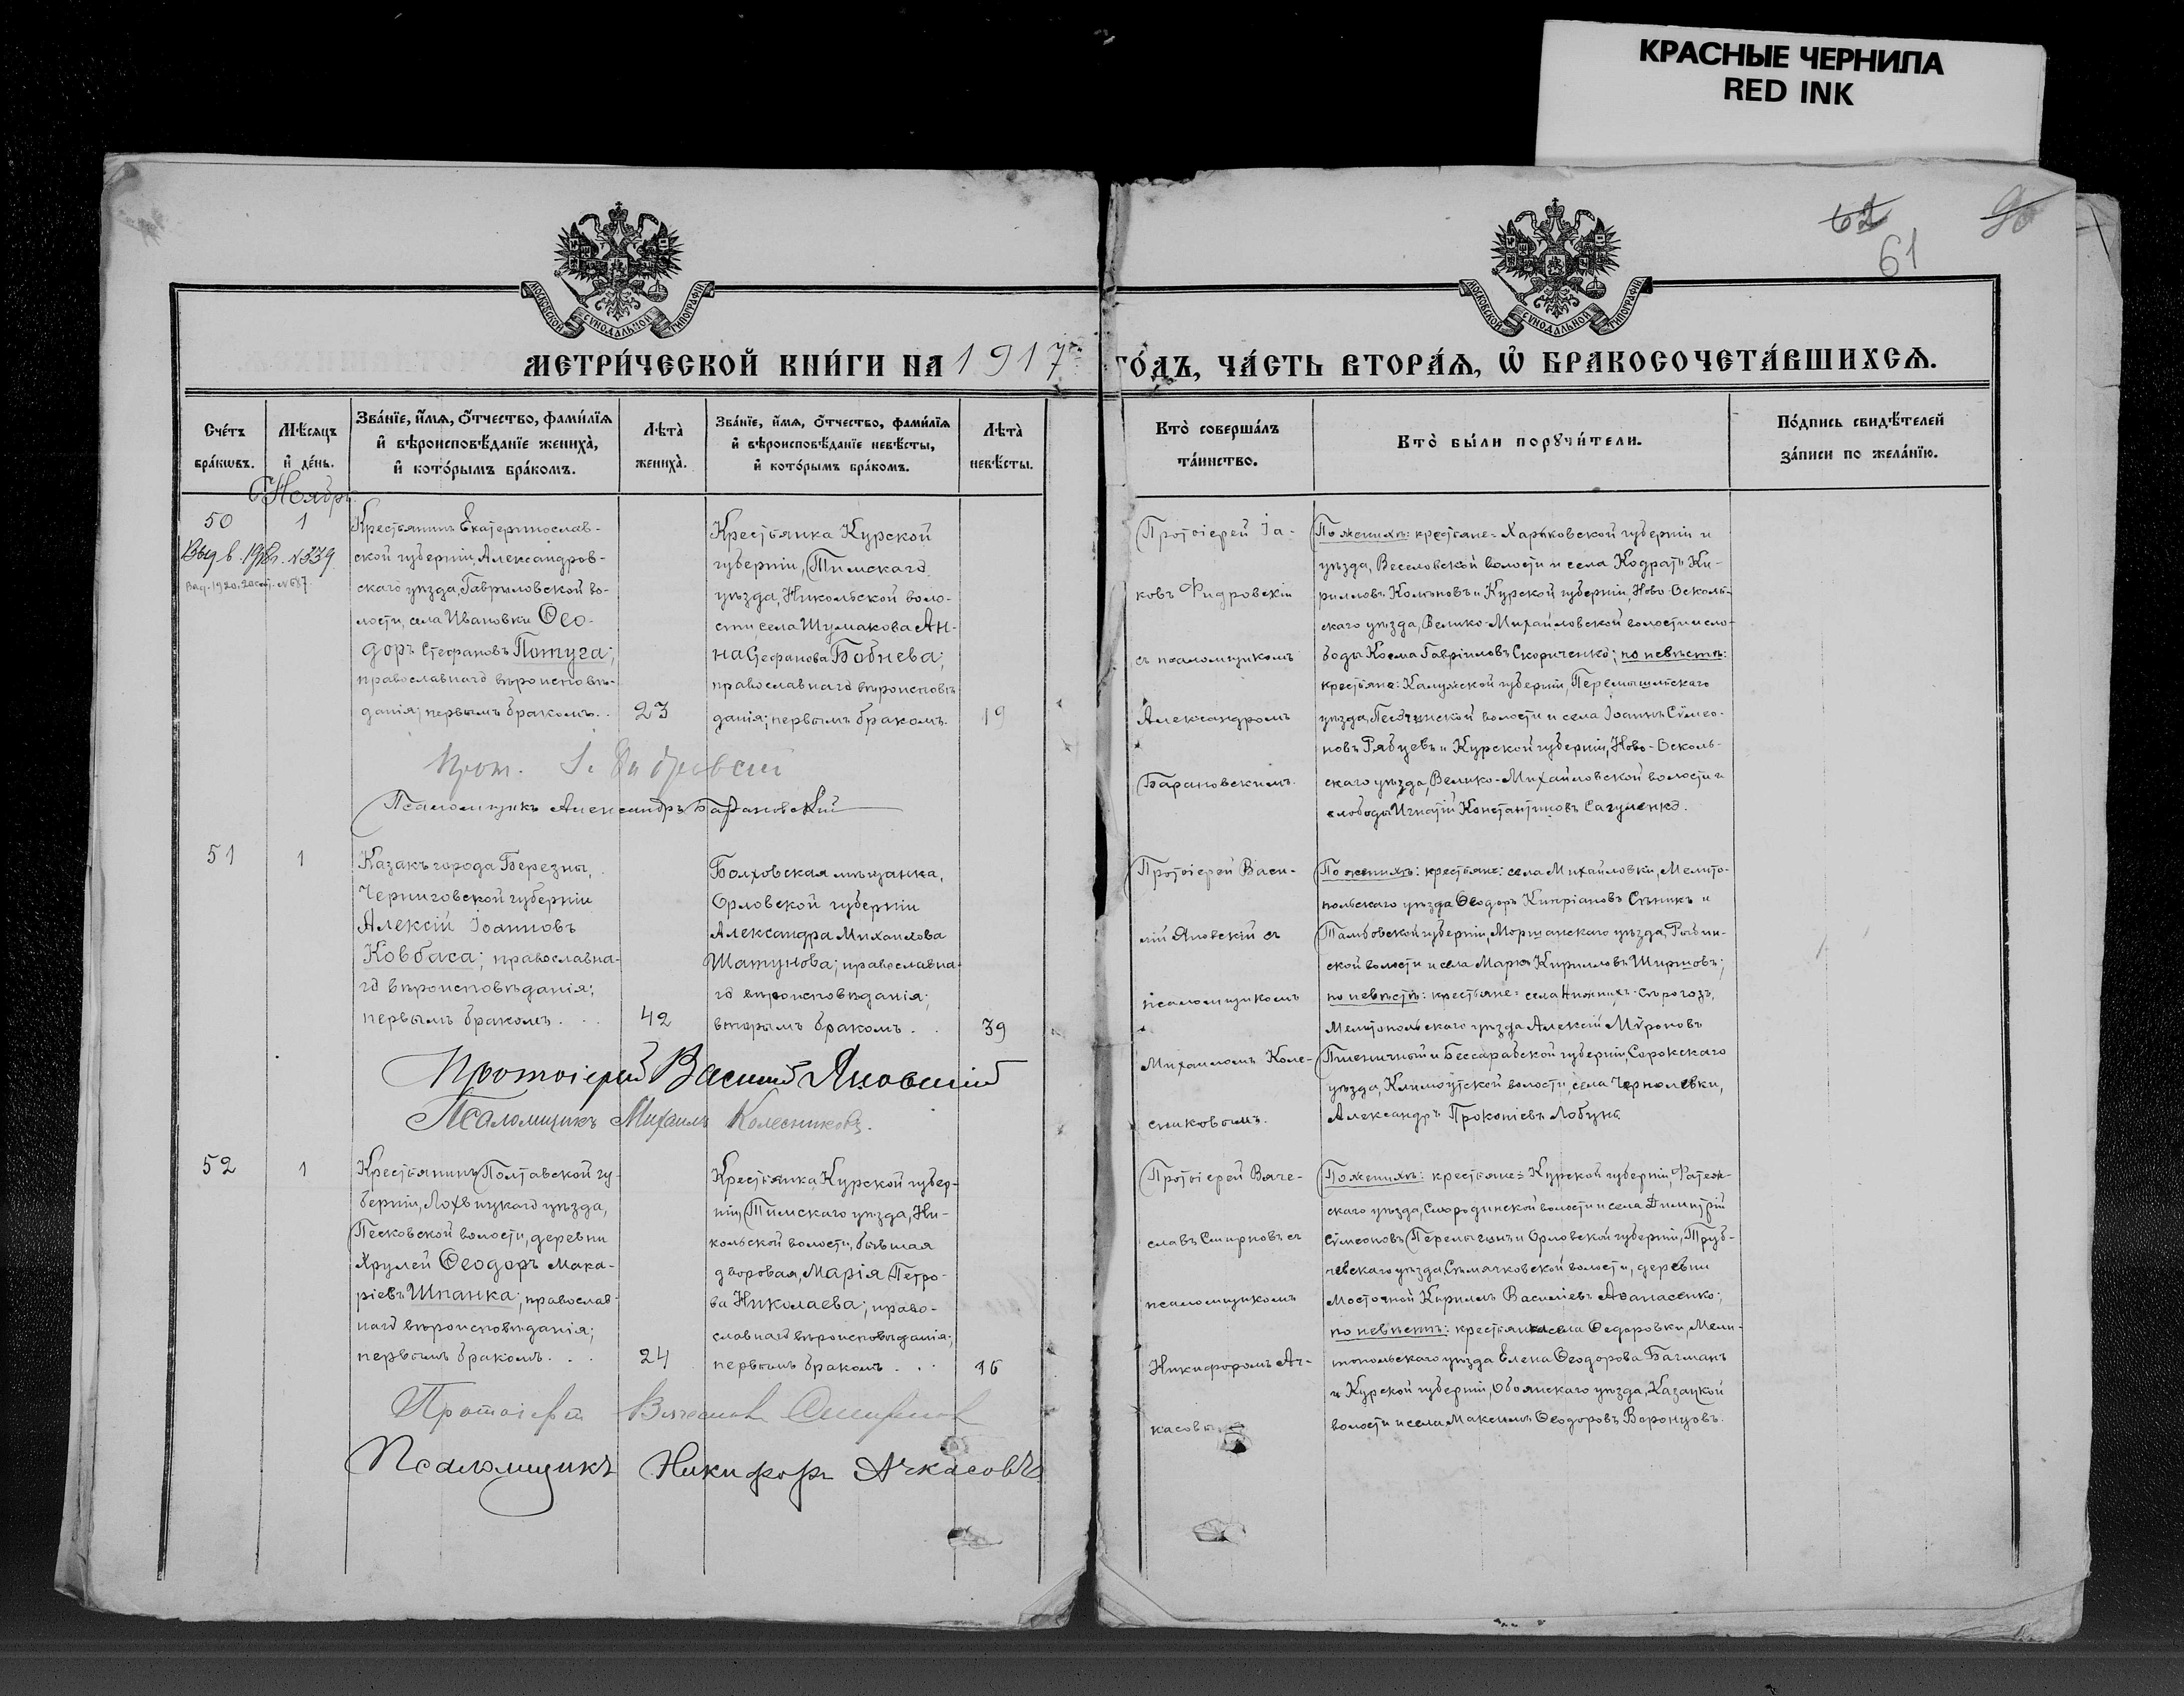 КРАСНЫЕ ЧЕРНИЛА
RED INK
62
90
61
МОСКОВСКОЙ СѴНОДАЛЬНОЙ ТИПОГРАФІИ
МОСКОВСКОЙ СѴНОДАЛЬНОЙ ТИПОГРАФІИ
МЕТРИ́ЧЕСКОЙ КНИ́ГИ НА 1917 ГО́ДЪ, ЧА́СТЬ ВТОРА́Ѧ, Ѡ҆ БРАКОСОЧЕТА́ВШИХСѦ.
Сче́тъ бра́кѡвъ.
Мѣ́сяцъ и҆ де́нь.
Зва́нїе, и҆́мѧ, ѻ҆́тчество, фами́лїѧ и҆ вѣроисповѣ́данїе жениха̀, и҆ кото́рымъ бра́комъ.
Лѣта̀ жениха̀.
Зва́нїе, и҆́мѧ, ѻ҆́тчество, фами́лїѧ и҆ вѣроисповѣ́данїе невѣ́сты, и҆ кото́рымъ бра́комъ.
Лѣта̀ невѣ́сты.
Кто̀ соверша́лъ та́инство.
Кто̀ бы́ли порꙋчи́тели.
По́дпись свидѣ́телей за́писи по жела́нїю.
Ноябрь
50
1
№ 339
№ 687
Крестьянинъ Екатеринослав-
ской губерніи, Александров-
скаго уѣзда, Гавриловской во-
лости, села Ивановки Ѳео-
доръ Стефановъ Потуга;
православнаго вѣроисповѣ-
данія; первымъ бракомъ. .
23
Крестьянка Курской
губерніи, Тимскаго
уѣзда, Никольской воло-
сти села Шумакова Ан-
на Стефанова Бобнева;
православнаго вѣроисповѣ-
данія; первымъ бракомъ.
19
Протоіерей Іа-
ковъ Фидровскій
съ псаломщикомъ
Александромъ
Барановскимъ.
По женихѣ: крестьяне: Харьковской губерніи и
уѣзда, Веселовской волости и села Кодратъ Ки-
рилловъ и Курской губерніи, Ново-Осколь-
скаго уѣзда, Велико-Михайловской волости и сло-
боды Косма Гавріиловъ Скориченко; по невѣстѣ:
крестьяне: Калужской губерніи, Перемышльскаго
уѣзда, Песоченской волости и села Іоаннъ Сѵмео-
новъ Рябцевъ и Курской губерніи, Ново-Осколь-
скаго уѣзда, Велико-Михайловской волости и
слободы Игнатій Константиновъ Сагуленко.
Прот. І. Фидровскій
Псаломщикъ Александръ Барановскій
51
1
Казакъ города Березны,
Черниговской губерніи
Алексій Іоанновъ
Ковбаса; православна-
го вѣроисповѣданія;
первымъ бракомъ . . .
42
Болховская мѣщанка,
Орловской губерніи
Александра Михаилова
Шатунова; православна-
го вѣроисповѣданія;
вторымъ бракомъ . .
39
Протоіерей Васи-
лій Яновскій съ
псаломщикомъ
Михаиломъ Коле-
сниковымъ.
По женихѣ: крестьяне: села Михайловки, Мелито-
польскаго уѣзда Ѳеодоръ Кипріановъ Сѣникъ и
Тамбовской губерніи, Моршанскаго уѣзда, Рыбин-
ской волости и села Маркъ Кирилловъ Ширшовъ;
по невѣстѣ: крестьяне: села Нижнихъ-Сѣрогозъ,
Мелитопольскаго уѣзда Алексій Мѵроновъ
Пшеничный и Бессарабской губерніи, Сорокскаго
уѣзда, Климоутской волости, села Чернолевки,
Александръ Прокопіевъ Лобунъ.
Протоіерей Василій Яновскій
Псаломщикъ Михаилъ Колесниковъ.
52
1
Крестьянинъ Полтавской гу-
берніи, Лохвицкаго уѣзда,
Песковской волости, деревни
Хрулей Ѳеодоръ Мака-
ріевъ Шпанка; православ-
наго вѣроисповѣданія;
первымъ бракомъ. . .
24
Крестьянка Курской губер-
ніи, Тимскаго уѣзда, Ни-
кольской волости, бывшая
дворовая, Марія Петро-
ва Николаева; право-
славнаго вѣроисповѣданія;
первымъ бракомъ . . .
16
Протоіерей Вяче-
славъ Смирновъ съ
псаломщикомъ
Никифоромъ Ач-
касовы
По женихѣ: крестьяне: Курской губерніи, Фатеж-
скаго уѣзда, Смородинской волости и села Димитрій
Сѵмеоновъ и Орловской губерніи, Труб-
чевскаго уѣзда, Сѣмячковской волости, деревни
Мосточной Кириллъ Василіевъ Аѳанасенко;
по невѣстѣ: крестьянка села Ѳедоровки, Мели-
топольскаго уѣзда Елена Ѳеодорова Багманъ
и Курской губерніи, Обоянскаго уѣзда, Казацкой
волости и села Максимъ Ѳеодоровъ Воронцовъ.
Протоіерей Вячеславъ Смирновъ
Псаломщикъ Никифоръ Ачкасовъ